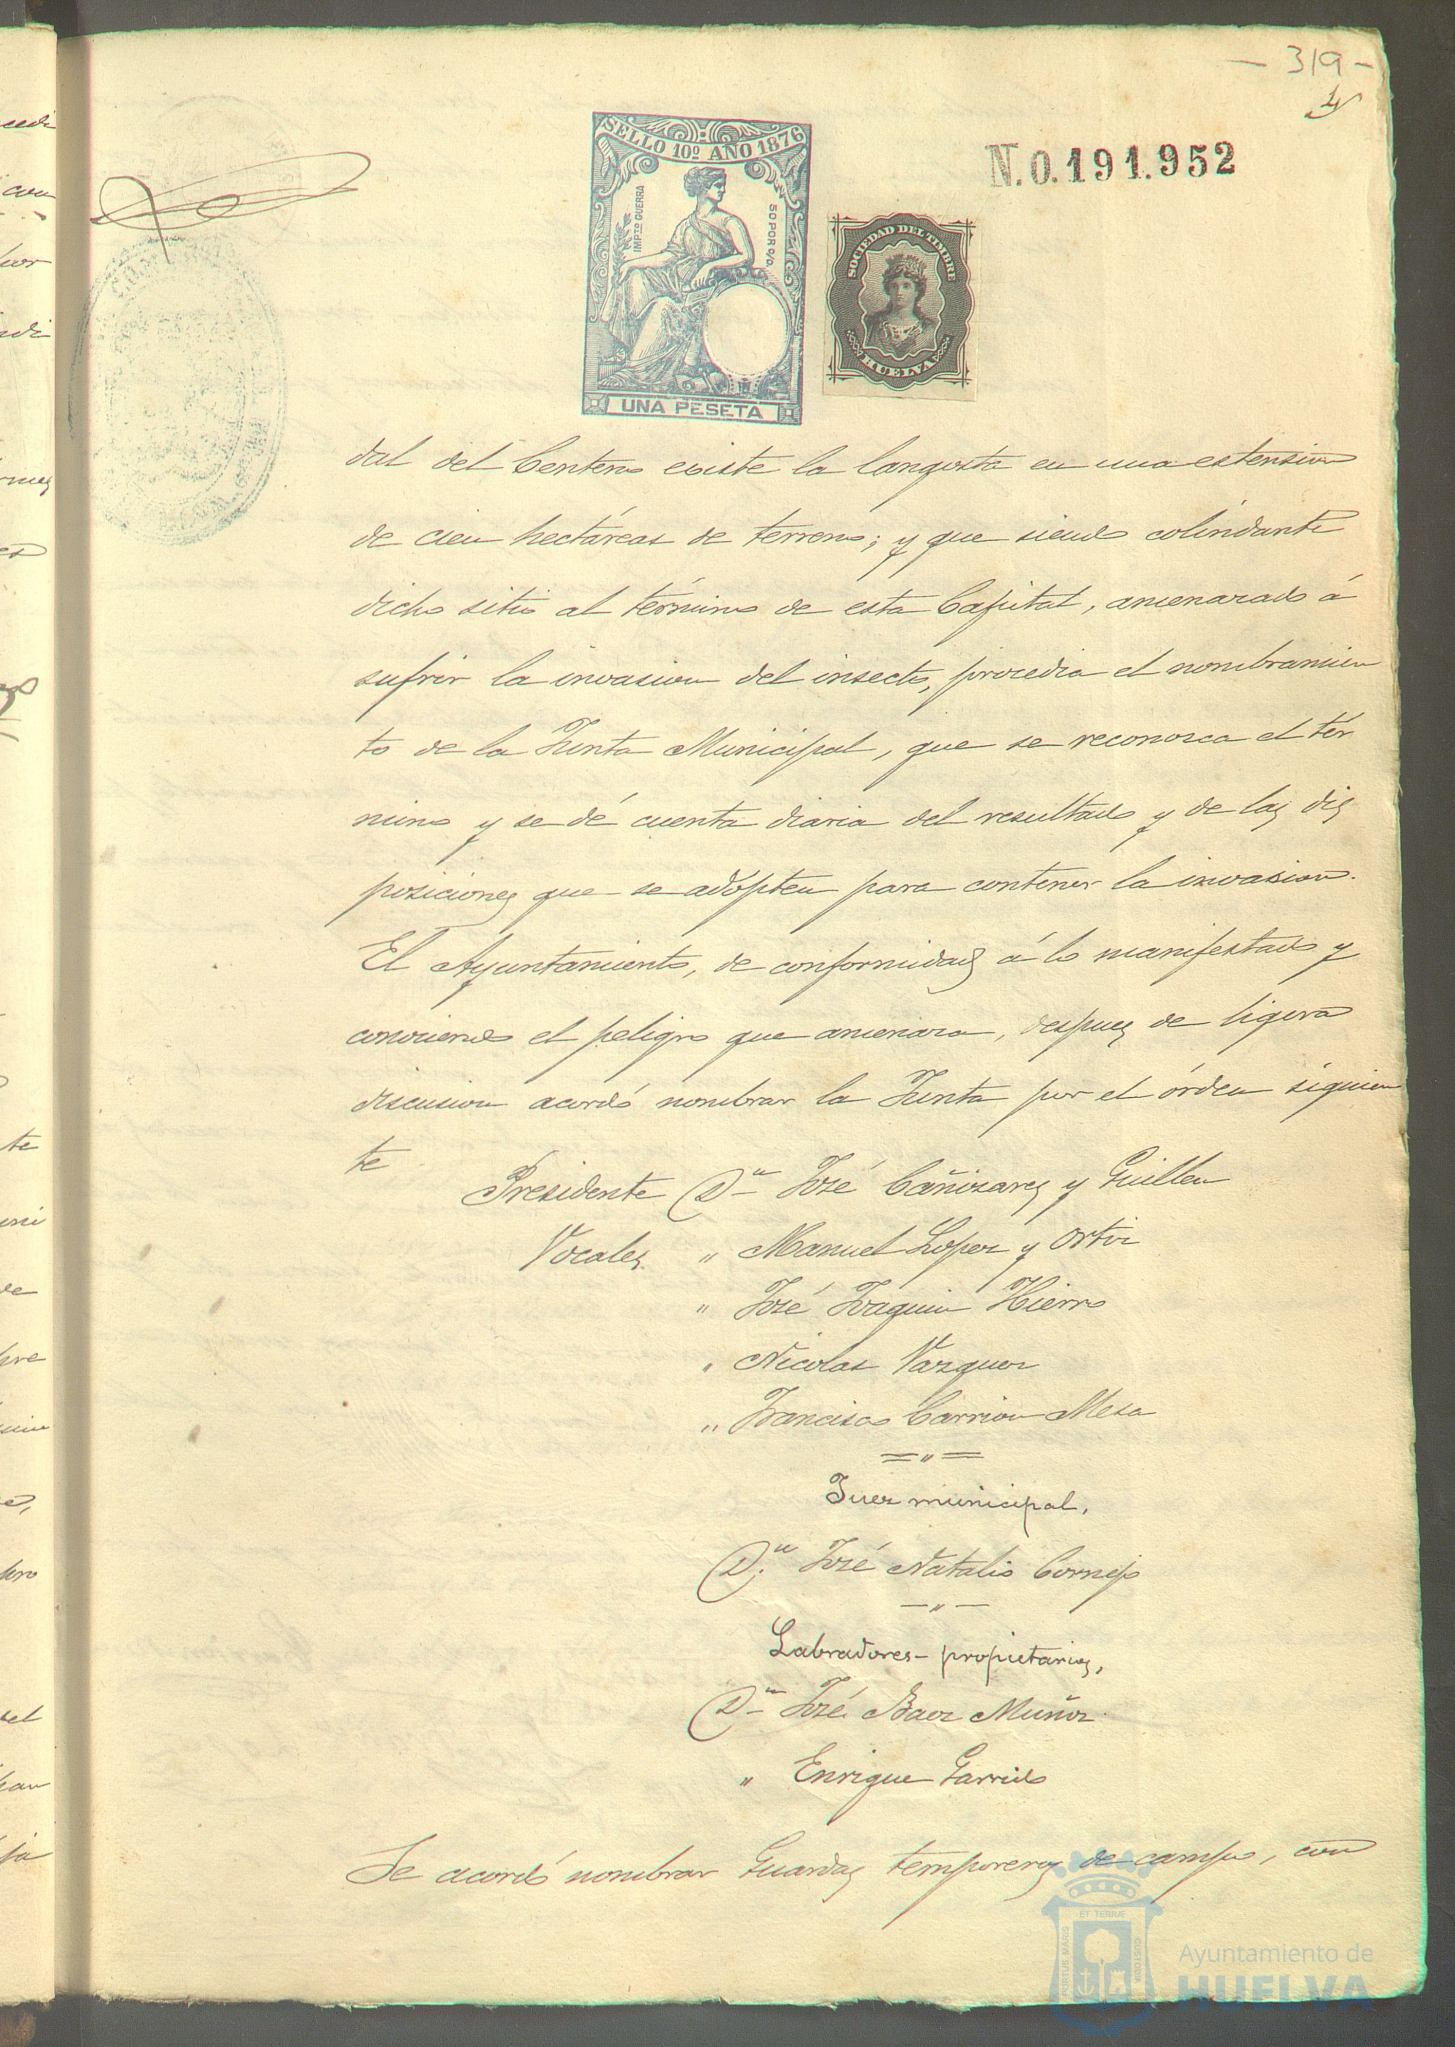 - 319 -
SELLO 10º AÑO 1876
IMPTO GUERRA
50 POR 0/0.
UNA PESETA
SOCIEDAD DEL TIMBRE
HUELVA
N.0.191.952
dal del Centeno ecsiste la langosta en una estension
de cien hectáreas de terreno; y que siendo colindante
dicho sitio al término de esta Capital, amenazado á
sufrir la invasion del insecto, procedia el nombramien
to de la Junta Municipal, que se reconosca el tér
mino y se dé cuenta diaria del resultado y de las dis
posiciones que se adopten para contener la invasion.
El Ayuntamiento, de conformidad á lo manifestado y
conociendo el peligro que amenaza, despues de ligera
discusion acordó nombrar la Junta por el órden siguien
te
Presidente Dn José Cañizares y Guillen
Vocales " Manuel Lopez y Ortiz
" José Joaquin Hierro
" Nicolas Vazquez
" Francisco Carrion Mesa
Juez municipal,
Dn José Natalio Cornejo
Labradores - propietarios,
Dn José Baez Muñoz
" Enrique Garrido
Se acordó nombrar Guardas temporeros de campo, con
PORTUS MARIS
ET TERRÆ
CUSTODIA
Ayuntamiento de
HUELVA